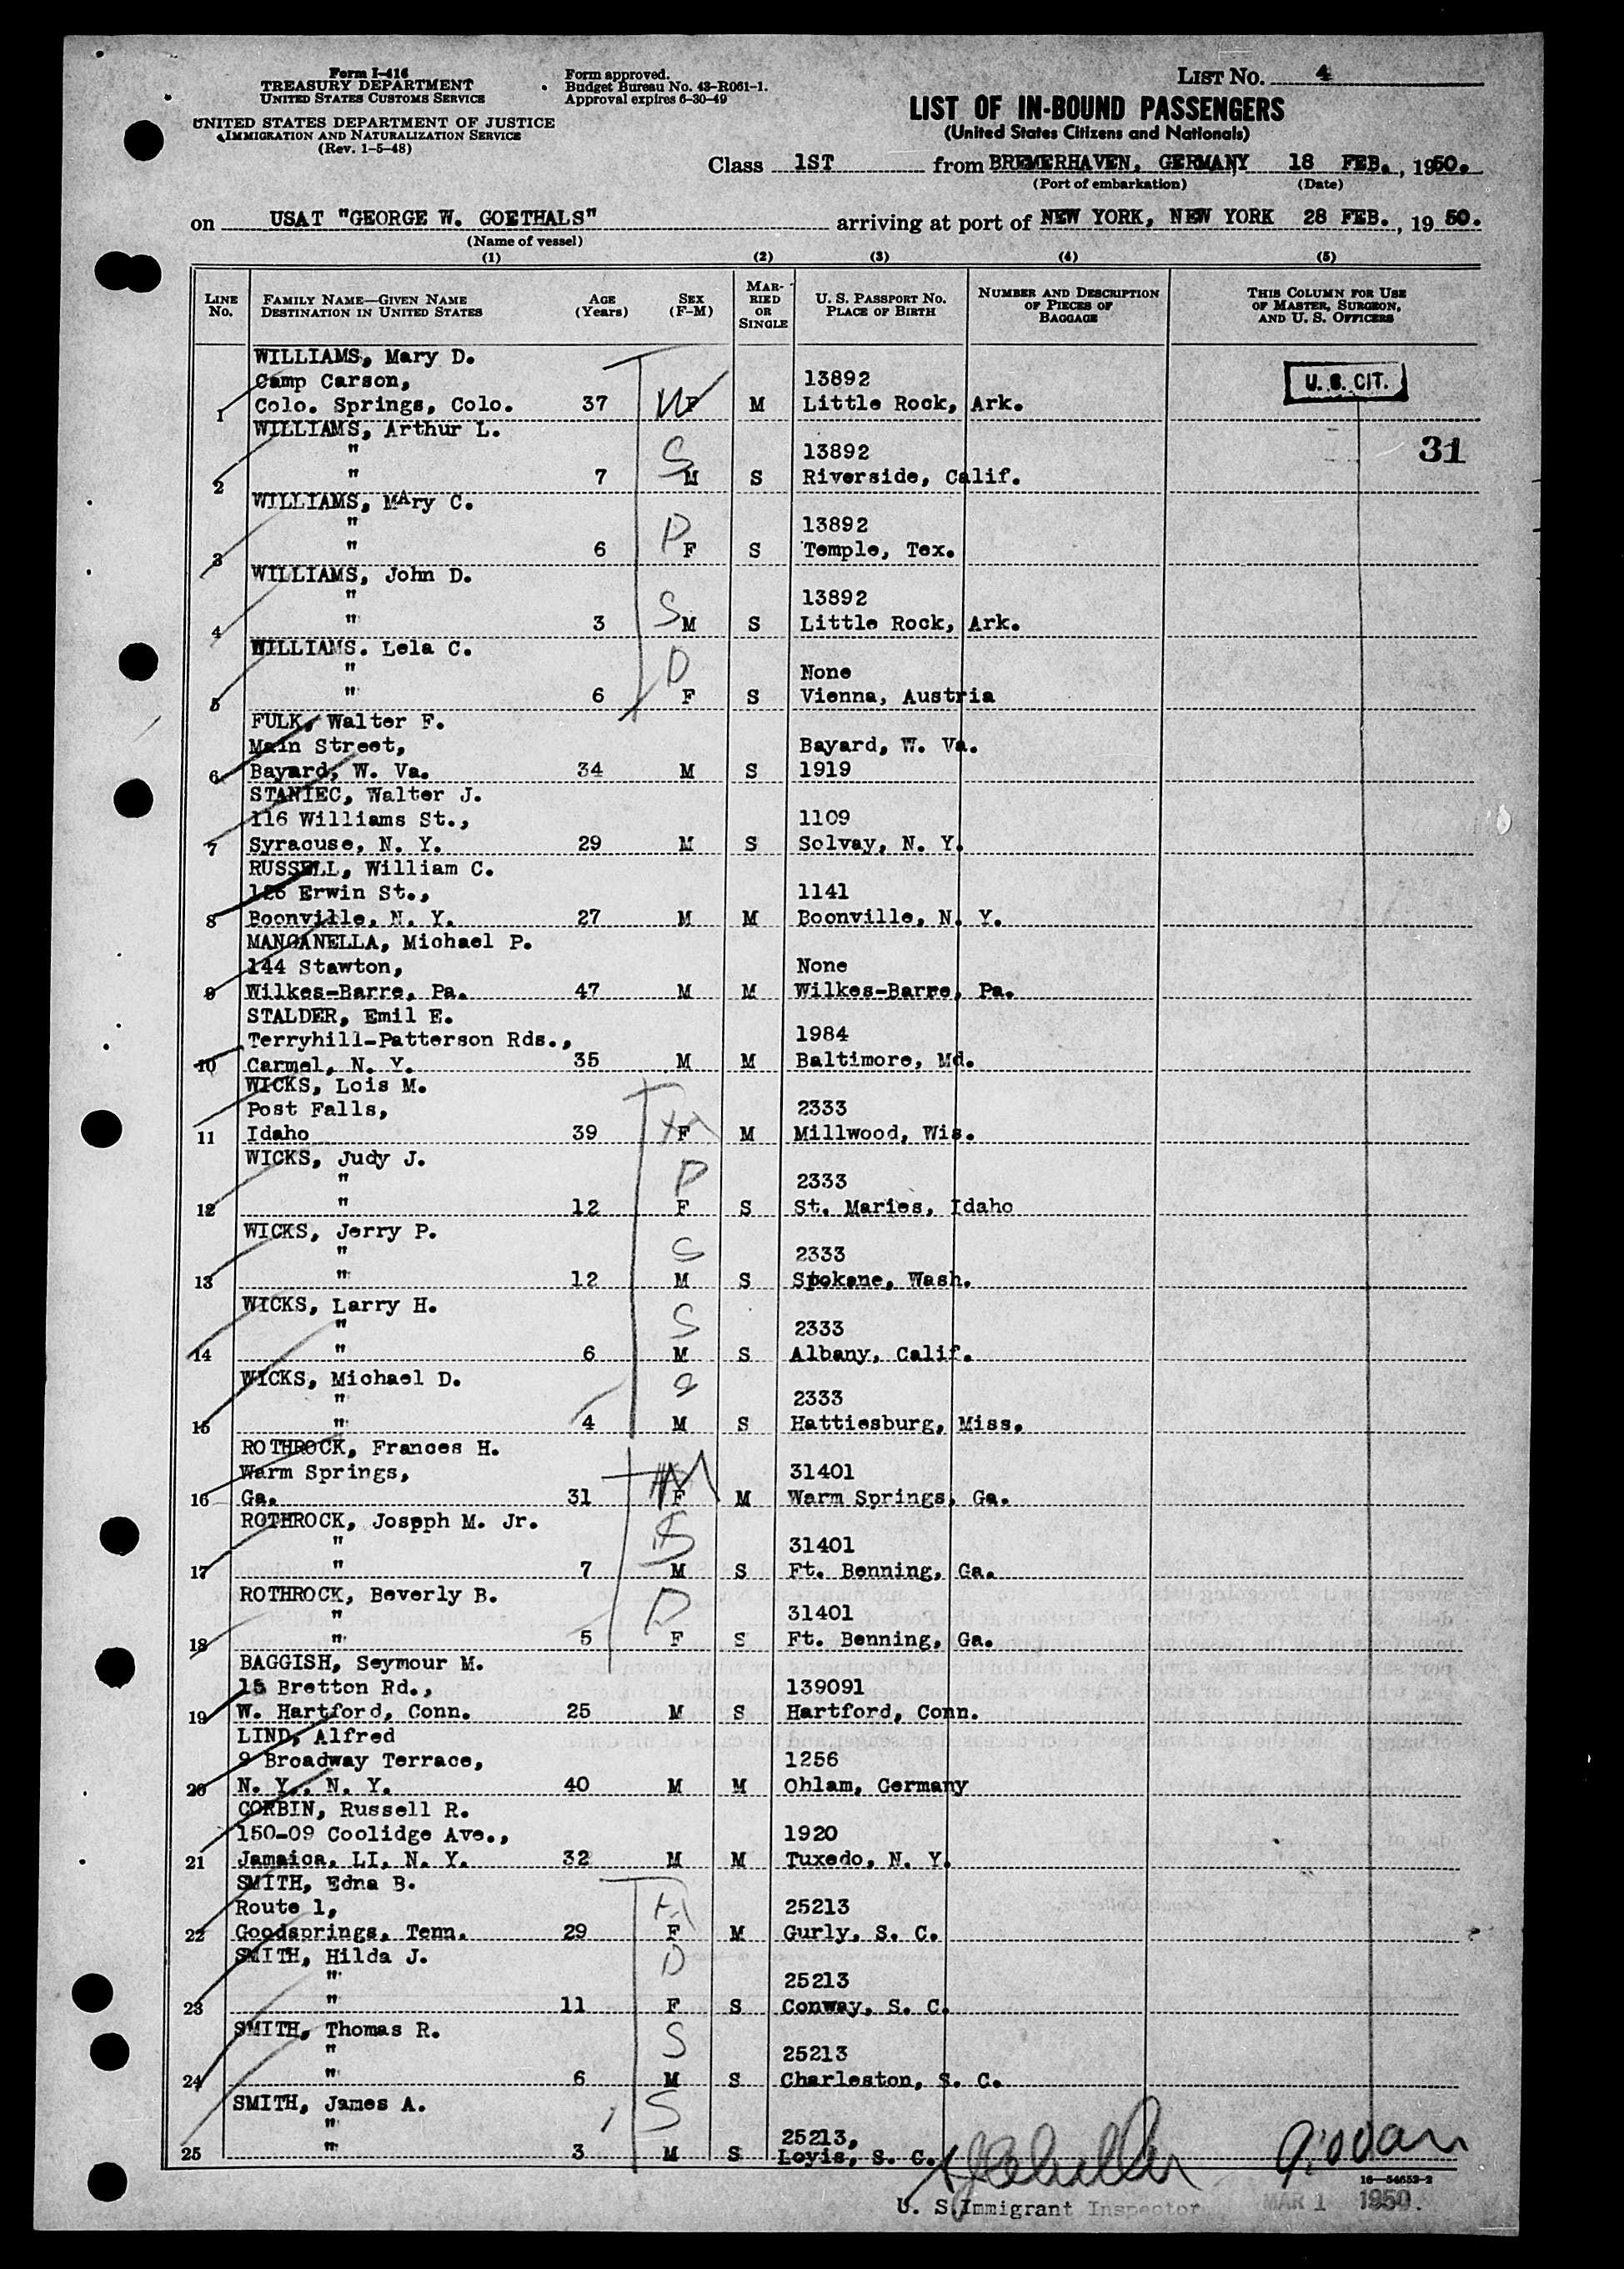 Form I-416
TREASURY DEPARTMENT
UNITED STATES CUSTOMS SERVICE
UNITED STATES DEPARTMENT OF JUSTICE
IMMIGRATION AND NATURALIZATION SERVICE
(Rev. 1-5-48)
Form approved.
Budget Bureau No. 43-R061-1.
Approval expires 6-30-49
LIST No. 4
LIST OF IN-BOUND PASSENGERS
(United States Citizens and Nationals)
Class 1ST from BREMERHAVEN, GERMANY 18 FEB., 1950.
(Port of embarkation) (Date)
on USAT "GEORGE W. GOETHALS" arriving at port of NEW YORK, NEW YORK 28 FEB., 1950.
(Name of vessel)
(1) (2) (3) (4) (5)
LINE No. FAMILY NAME—GIVEN NAME DESTINATION IN UNITED STATES AGE (Years) SEX (F-M) MARRIED OR SINGLE U. S. PASSPORT No. PLACE OF BIRTH NUMBER AND DESCRIPTION OF PIECES OF BAGGAGE THIS COLUMN FOR USE OF MASTER, SURGEON, AND U. S. OFFICERS
WILLIAMS, Mary D.
Camp Carson, 13892 U. S. CIT.
1 Colo. Springs, Colo. 37 W F M Little Rock, Ark.
WILLIAMS, Arthur L.
" S 13892 31
2 " 7 M S Riverside, Calif.
WILLIAMS, MAry C.
" D 13892
3 " 6 F S Temple, Tex.
WILLIAMS, John D.
" S 13892
4 " 3 M S Little Rock, Ark.
WILLIAMS. Lela C.
" D None
5 " 6 F S Vienna, Austria
FULK, Walter F.
Main Street, Bayard, W. Va.
6 Bayard, W. Va. 34 M S 1919
STANIEC, Walter J.
116 Williams St., 1109
7 Syracuse, N. Y. 29 M S Solvay, N. Y.
RUSSELL, William C.
126 Erwin St., 1141
8 Boonville, N. Y. 27 M M Boonville, N. Y.
MANGANELLA, Michael P.
144 Stawton, None
9 Wilkes-Barre, Pa. 47 M M Wilkes-Barre, Pa.
STALDER, Emil E.
Terryhill-Patterson Rds., 1984
10 Carmel, N. Y. 35 M M Baltimore, Md.
WICKS, Lois M.
Post Falls, 2333
11 Idaho 39 F M Millwood, Wis.
WICKS, Judy J.
" D 2333
12 " 12 F S St. Maries, Idaho
WICKS, Jerry P.
" S 2333
13 " 12 M S Spokane, Wash.
WICKS, Larry H.
" S 2333
14 " 6 M S Albany, Calif.
WICKS, Michael D.
" S 2333
15 " 4 M S Hattiesburg, Miss.
ROTHROCK, Frances H.
Warm Springs, 31401
16 Ga. 31 F M Warm Springs, Ga.
ROTHROCK, Joseph M. Jr.
" S 31401
17 " 7 M S Ft. Benning, Ga.
ROTHROCK, Beverly B.
" D 31401
18 " 5 F S Ft. Benning, Ga.
BAGGISH, Seymour M.
15 Bretton Rd., 139091
19 W. Hartford, Conn. 25 M S Hartford, Conn.
LIND, Alfred
9 Broadway Terrace, 1256
20 N. Y., N. Y. 40 M M Ohlam, Germany
CORBIN, Russell R.
150-09 Coolidge Ave., 1920
21 Jamaica, LI, N. Y. 32 M M Tuxedo, N. Y.
SMITH, Edna B.
Route 1, 25213
22 Goodsprings, Tenn. 29 F M Gurly, S. C.
SMITH, Hilda J.
" D 25213
23 " 11 F S Conway, S. C.
SMITH, Thomas R.
" S 25213
24 " 6 M S Charleston, S. C.
SMITH, James A.
" S 25213,
25 " 3 M S Loyis, S. C.
16—54652-2
U. S. Immigrant Inspector MAR 1 1950.